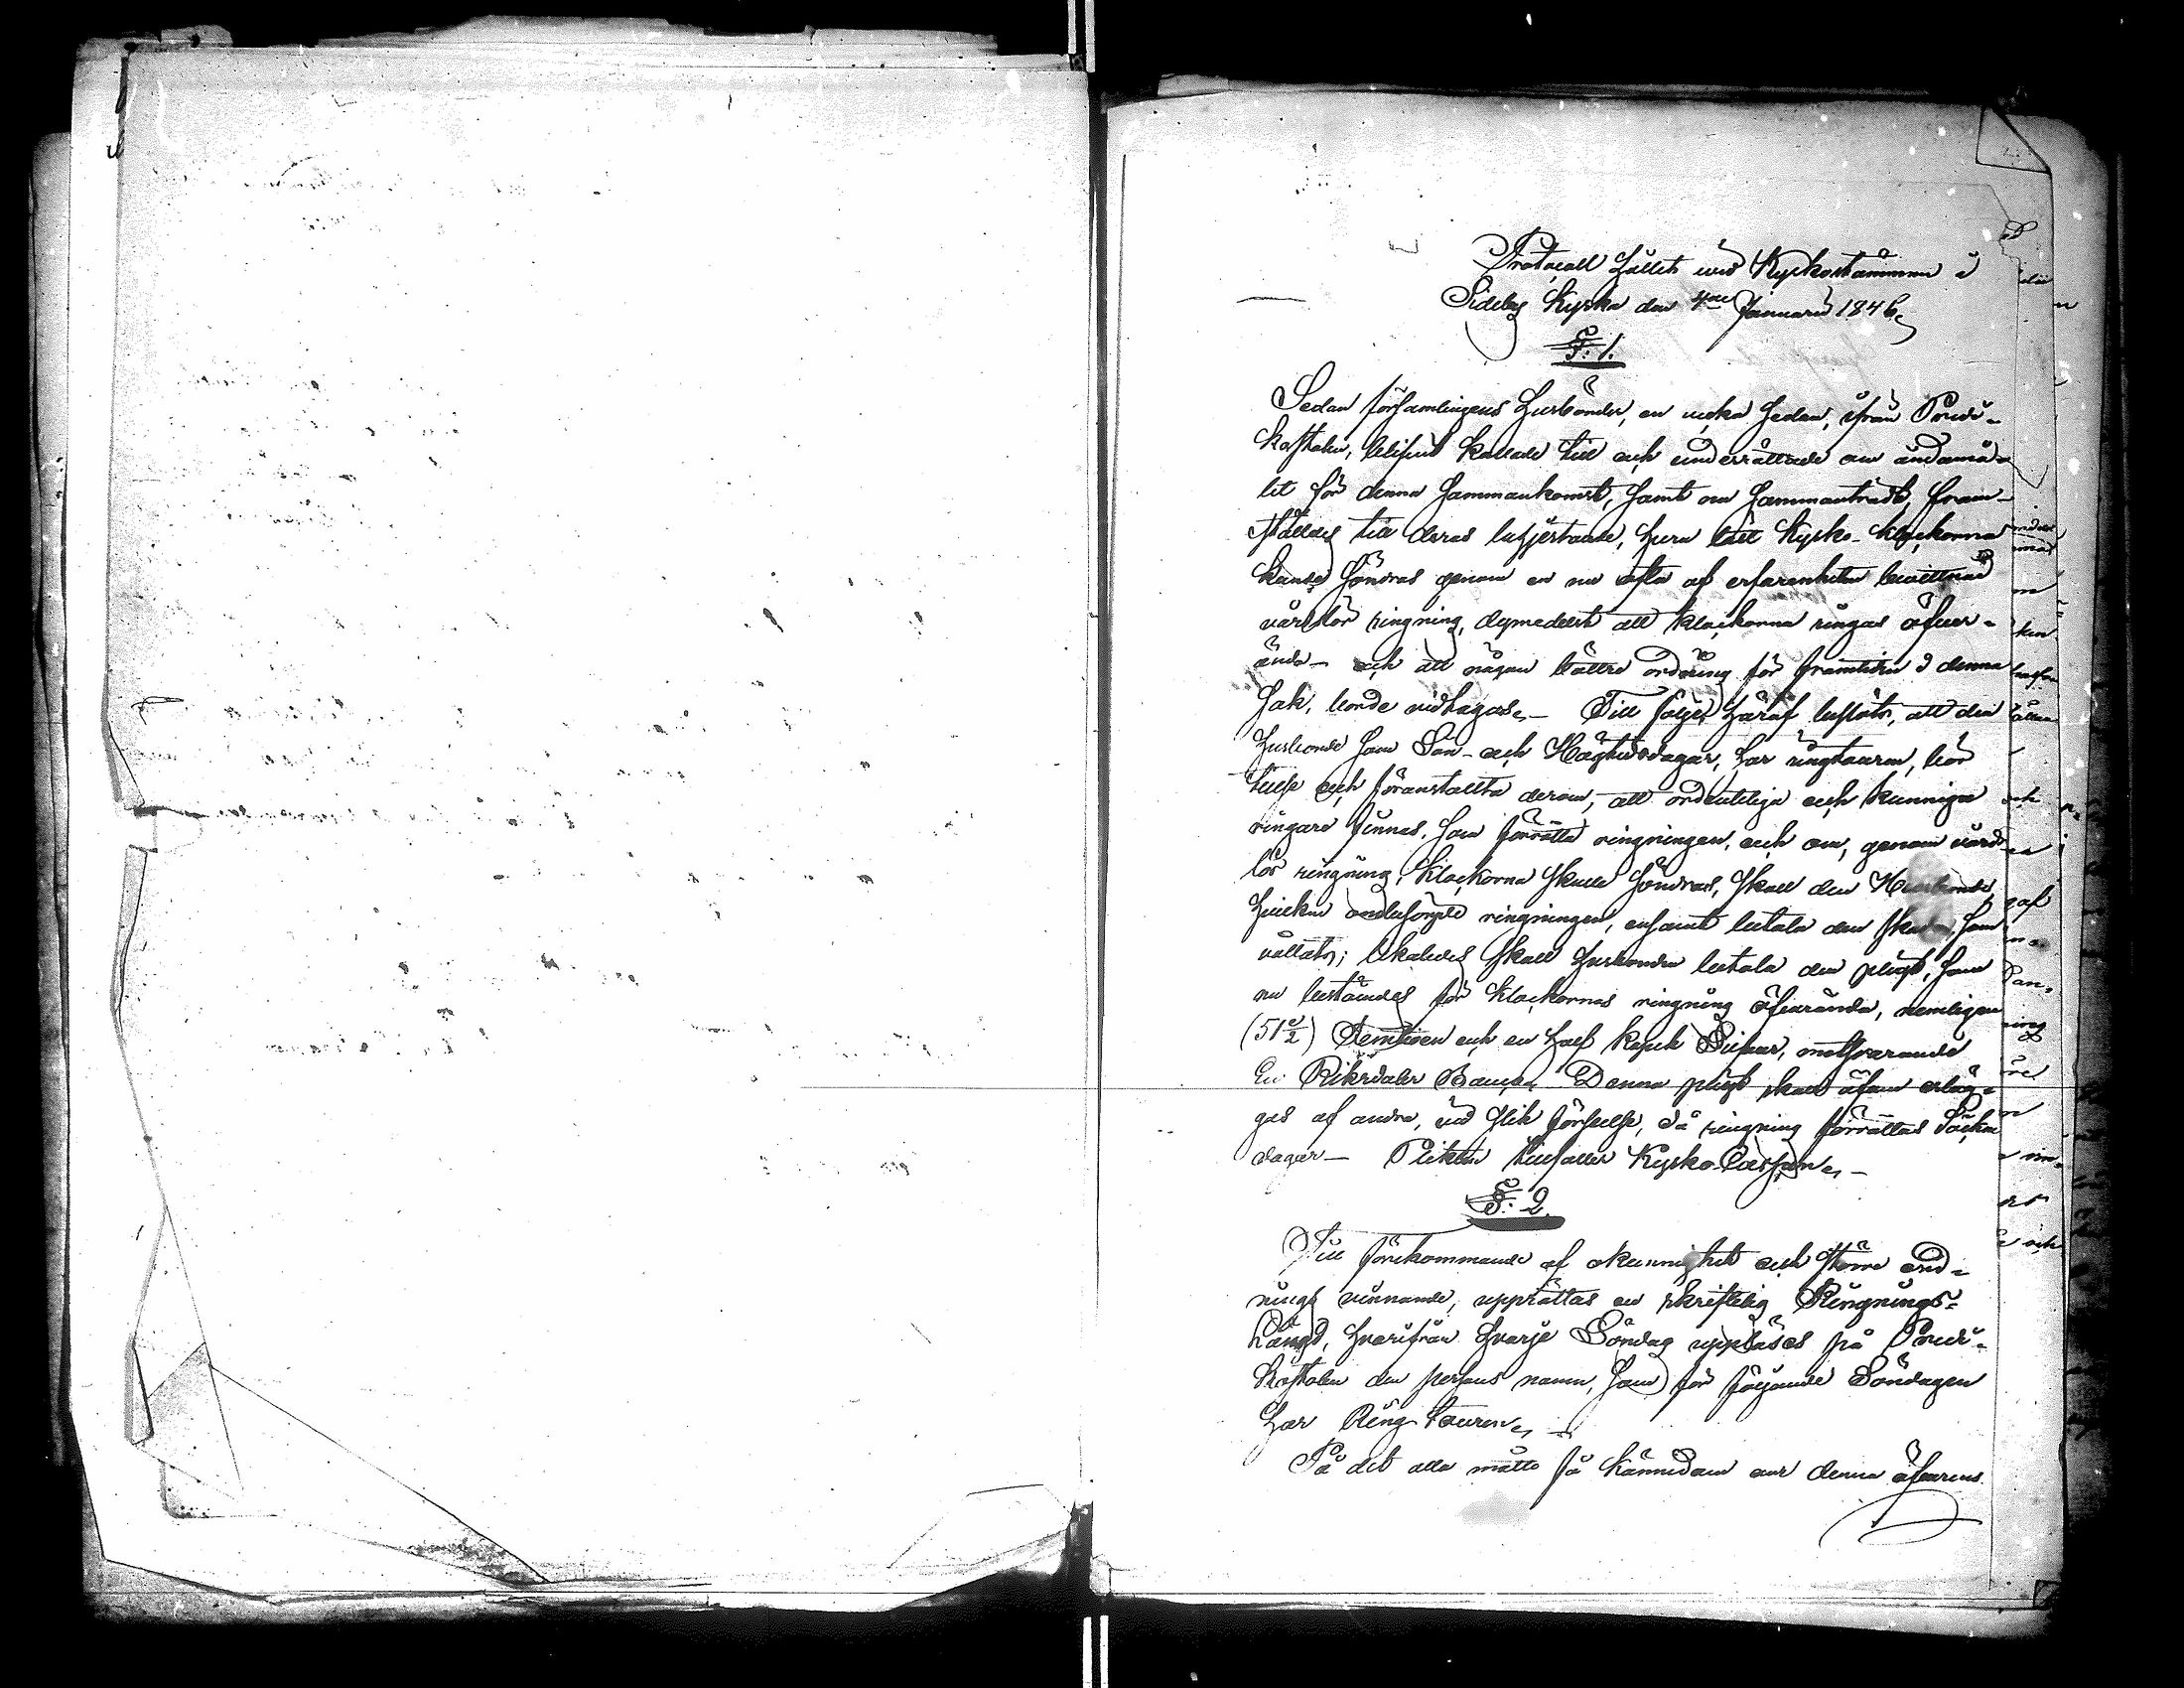 Protocoll hållet vid Kyrkostämman i
Sideby Kyrka den 4de Januarii 1846,
§: 1.
Sedan församlingens husbönder, en vecka sedan, ifrån Predi-
kostolen, blifvit kallade till och underrättade om ändamå-
let för denna sammankomst, samt nu sammanträdt, fram-
ställdes till deras behjertande, huru lätt Kyrko-klockorna
kunde söndras genom en nu ofta af erfarenheten bevittnad
vårdslös ringning, dymedelst att klockorna ringas öfver-
ända - och att någon bättre ordning för framtiden i denna
sak, borde vidtagas. - Till följe häraf beslöts, att den
husbonde som Sön- och Högtidsdagar, har ringtouren, bör
tillse och föranstalta derom, att ordentliga och kunniga
ringare finnas, som förrätta ringningen, och om, genom vårds-
lös ringning, klockorna skulle söndras, skall den Husbonde,
hvilken ombesörjde ringningen, ensamt betala den skada, som
vållats; likaledes skall husbonden betala den pligt, som
nu bestämdes för klockornas ringning öfverända, nemligen
(51 1/2) Femtioen och en half kopek Silfver, motsvarande
En Riksdaler Banco. Denna pligt skall äfven erläg-
gas af andra, vid slik förseelse, då ringning förrättas Söckne
dagar - Plikten tillfaller Kyrko-Cassan. -
§: 2.
Till förekommande af okunnighet och större ord-
nings vinnande, upprättas en skriftelig Ringnings-
Längd, hvarifrån hvarje Söndag uppläses på Predi-
kostolen den persons namn, som för följande Söndagen
har Ring-touren. -
På det alla måtte få kännedom om denna öfverens